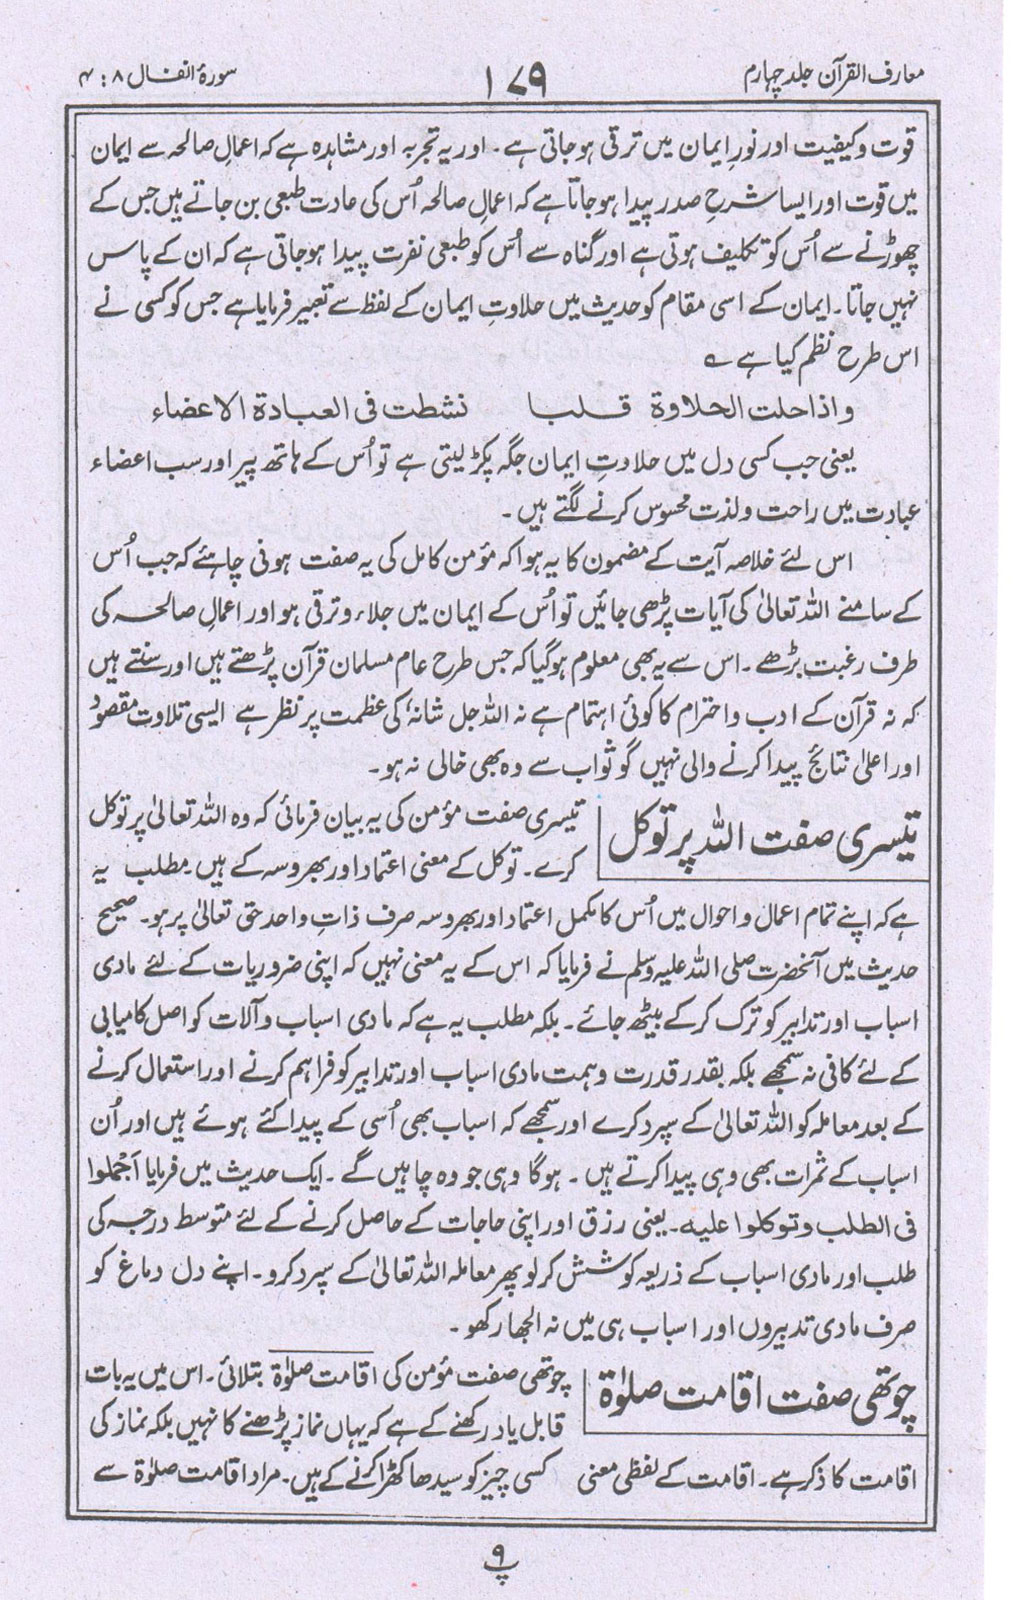 معارف القرآن جلد چہارم
۱۷۹
سورۂ انفال ۸ : ۴
قوت و کیفیت اور نورِ ایمان میں ترقی ہو جاتی ہے۔ اور یہ تجربہ اور مشاہدہ ہے کہ اعمالِ صالحہ سے ایمان
میں قوت اور ایسا شرحِ صدر پیدا ہو جاتا ہے کہ اعمالِ صالحہ اُس کی عادت طبعی بن جاتے ہیں جس کے
چھوڑنے سے اُس کو تکلیف ہوتی ہے اور گناہ سے اُس کو طبعی نفرت پیدا ہو جاتی ہے کہ ان کے پاس
نہیں جاتا۔ ایمان کے اسی مقام کو حدیث میں حلاوتِ ایمان کے لفظ سے تعبیر فرمایا ہے جس کو کسی نے
اس طرح نظم کیا ہے ؎
واذا حلت الحلاوة قلبا نشطت فی العبادة الاعضاء
یعنی جب کسی دل میں حلاوتِ ایمان جگہ پکڑ لیتی ہے تو اُس کے ہاتھ پیر اور سب اعضاء
عبادت میں راحت و لذت محسوس کرنے لگتے ہیں۔
اس لئے خلاصہ آیت کے مضمون کا یہ ہوا کہ مؤمن کامل کی یہ صفت ہونی چاہئے کہ جب اُس
کے سامنے اللہ تعالیٰ کی آیات پڑھی جائیں تو اُس کے ایمان میں جلاء و ترقی ہو اور اعمالِ صالحہ کی
طرف رغبت بڑھے۔ اس سے یہ بھی معلوم ہو گیا کہ جس طرح عام مسلمان قرآن پڑھتے ہیں اور سنتے ہیں
کہ نہ قرآن کے ادب و احترام کا کوئی اہتمام ہے نہ اللہ جل شانہٗ کی عظمت پر نظر ہے ایسی تلاوت مقصود
اور اعلیٰ نتائج پیدا کرنے والی نہیں گو ثواب سے وہ بھی خالی نہ ہو۔
تیسری صفت اللہ پر توکل
تیسری صفت مؤمن کی یہ بیان فرمائی کہ وہ اللہ تعالیٰ پر توکل
کرے۔ توکل کے معنی اعتماد اور بھروسہ کے ہیں۔ مطلب یہ
ہے کہ اپنے تمام اعمال و احوال میں اُس کا مکمل اعتماد اور بھروسہ صرف ذاتِ واحد حق تعالیٰ پر ہو۔ صحیح
حدیث میں آنحضرت صلی اللہ علیہ وسلم نے فرمایا کہ اس کے یہ معنی نہیں کہ اپنی ضروریات کے لئے مادی
اسباب اور تدابیر کو ترک کر کے بیٹھ جائے۔ بلکہ مطلب یہ ہے کہ مادی اسباب و آلات کو اصل کامیابی
کے لئے کافی نہ سمجھے بلکہ بقدر قدرت و ہمت مادی اسباب اور تدابیر کو فراہم کرنے اور استعمال کرنے
کے بعد معاملہ کو اللہ تعالیٰ کے سپرد کرے اور سمجھے کہ اسباب بھی اُسی کے پیدا کئے ہوئے ہیں اور اُن
اسباب کے ثمرات بھی وہی پیدا کرتے ہیں۔ ہوگا وہی جو وہ چاہیں گے۔ ایک حدیث میں فرمایا اَجْملوا
فی الطلب وتوکلوا علیہ۔ یعنی رزق اور اپنی حاجات کے حاصل کرنے کے لئے متوسط درجہ کی
طلب اور مادی اسباب کے ذریعہ کوشش کر لو پھر معاملہ اللہ تعالیٰ کے سپرد کرو۔ اپنے دل دماغ کو
صرف مادی تدبیروں اور اسباب ہی میں نہ الجھا رکھو۔
چوتھی صفت اقامت صلوٰۃ
چوتھی صفت مؤمن کی اقامت صلوٰۃ بتلائی۔ اس میں یہ بات
قابل یاد رکھنے کے ہے کہ یہاں نماز پڑھنے کا نہیں بلکہ نماز کی
اقامت کا ذکر ہے۔ اقامت کے لفظی معنی کسی چیز کو سیدھا کھڑا کرنے کے ہیں۔ مراد اقامت صلوٰۃ سے
پ ۹